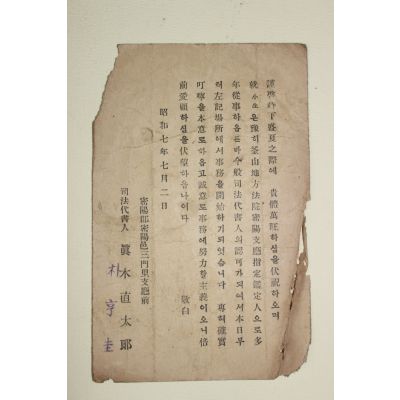 謹啓時下盛夏之際에 貴體萬旺하심을伏祝하오며
就小生은豫히釜山地方法院密陽支廳指定鑑定人으로多
年從事하옵든바今般司法代書人의認可가되여서本日부
터左記場所에서事務를開始하기되엿습니다 專히確實
叮寧을本意로하옵고誠意로事務에努力할主義이오니倍
前愛顧하심을伏望하옵나이다
敬白
昭和七年七月二日
密陽郡密陽邑三門里支廳前
司法代書人 眞木直太郎
朴亨圭